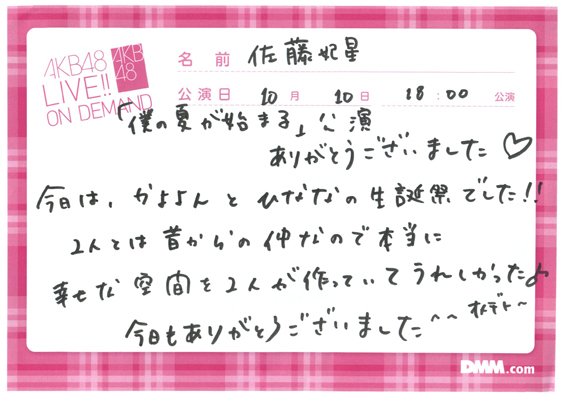 AKB48
LIVE!!
ON DEMAND
AKB
48
名前 佐藤妃星
公演日 10月 10日 18:00 公演
「僕の夏が始まる」公演
ありがとうございました♡
今日は、かよよんとひななの生誕祭でした!!
2人とは昔からの仲なので本当に
幸せな空間を2人が作っていてうれしかった♪
オメデト〜
今日もありがとうございました^^
DMM.com